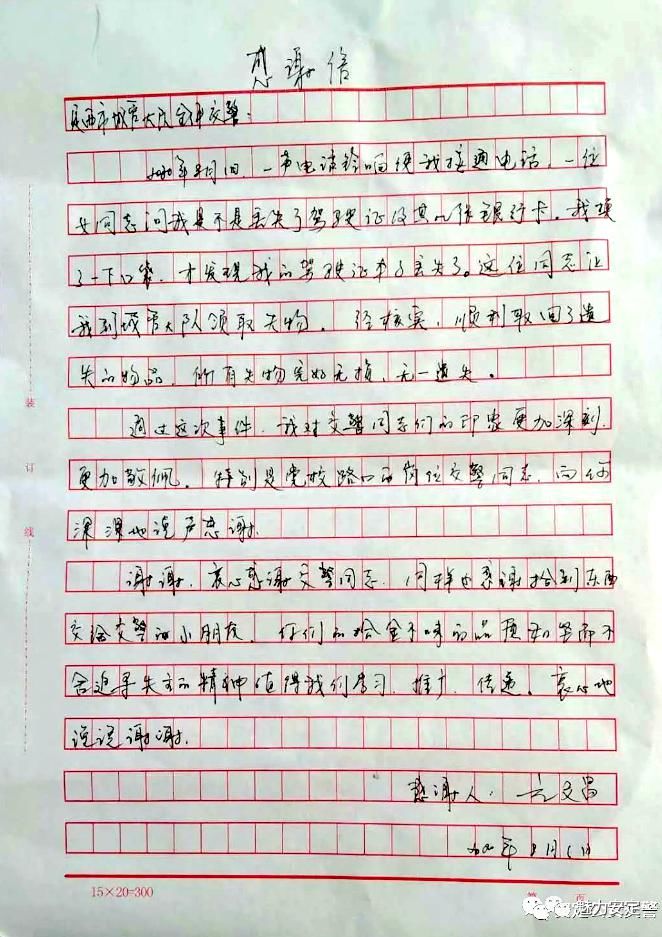 感谢信
定西市城管大队全体交警：
2020年8月1日，一声电话铃响使我接通电话，一位
女同志问我是不是丢失了驾驶证及其几张银行卡。我摸
了一下口袋，才发现我的驾驶证本子丢失了。这位同志让
我到城管大队领取失物。经核实，顺利取回了遗
失的物品，所有失物完好无损，无一遗失。
通过这次事件，我对交警同志们的印象更加深刻，
更加敬佩。特别是党校路口西岗位交警同志，向你
深深地说声感谢。
谢谢，衷心感谢交警同志，同样也感谢拾到东西
交给交警的小朋友，你们的拾金不昧的品质和坚而不
舍追寻失主的精神值得我们学习、推广、传递。衷心地
说说谢谢。
感谢人：文昌
2020年8月6日
装
订
线
15×20=300
第 页
魅力安定警